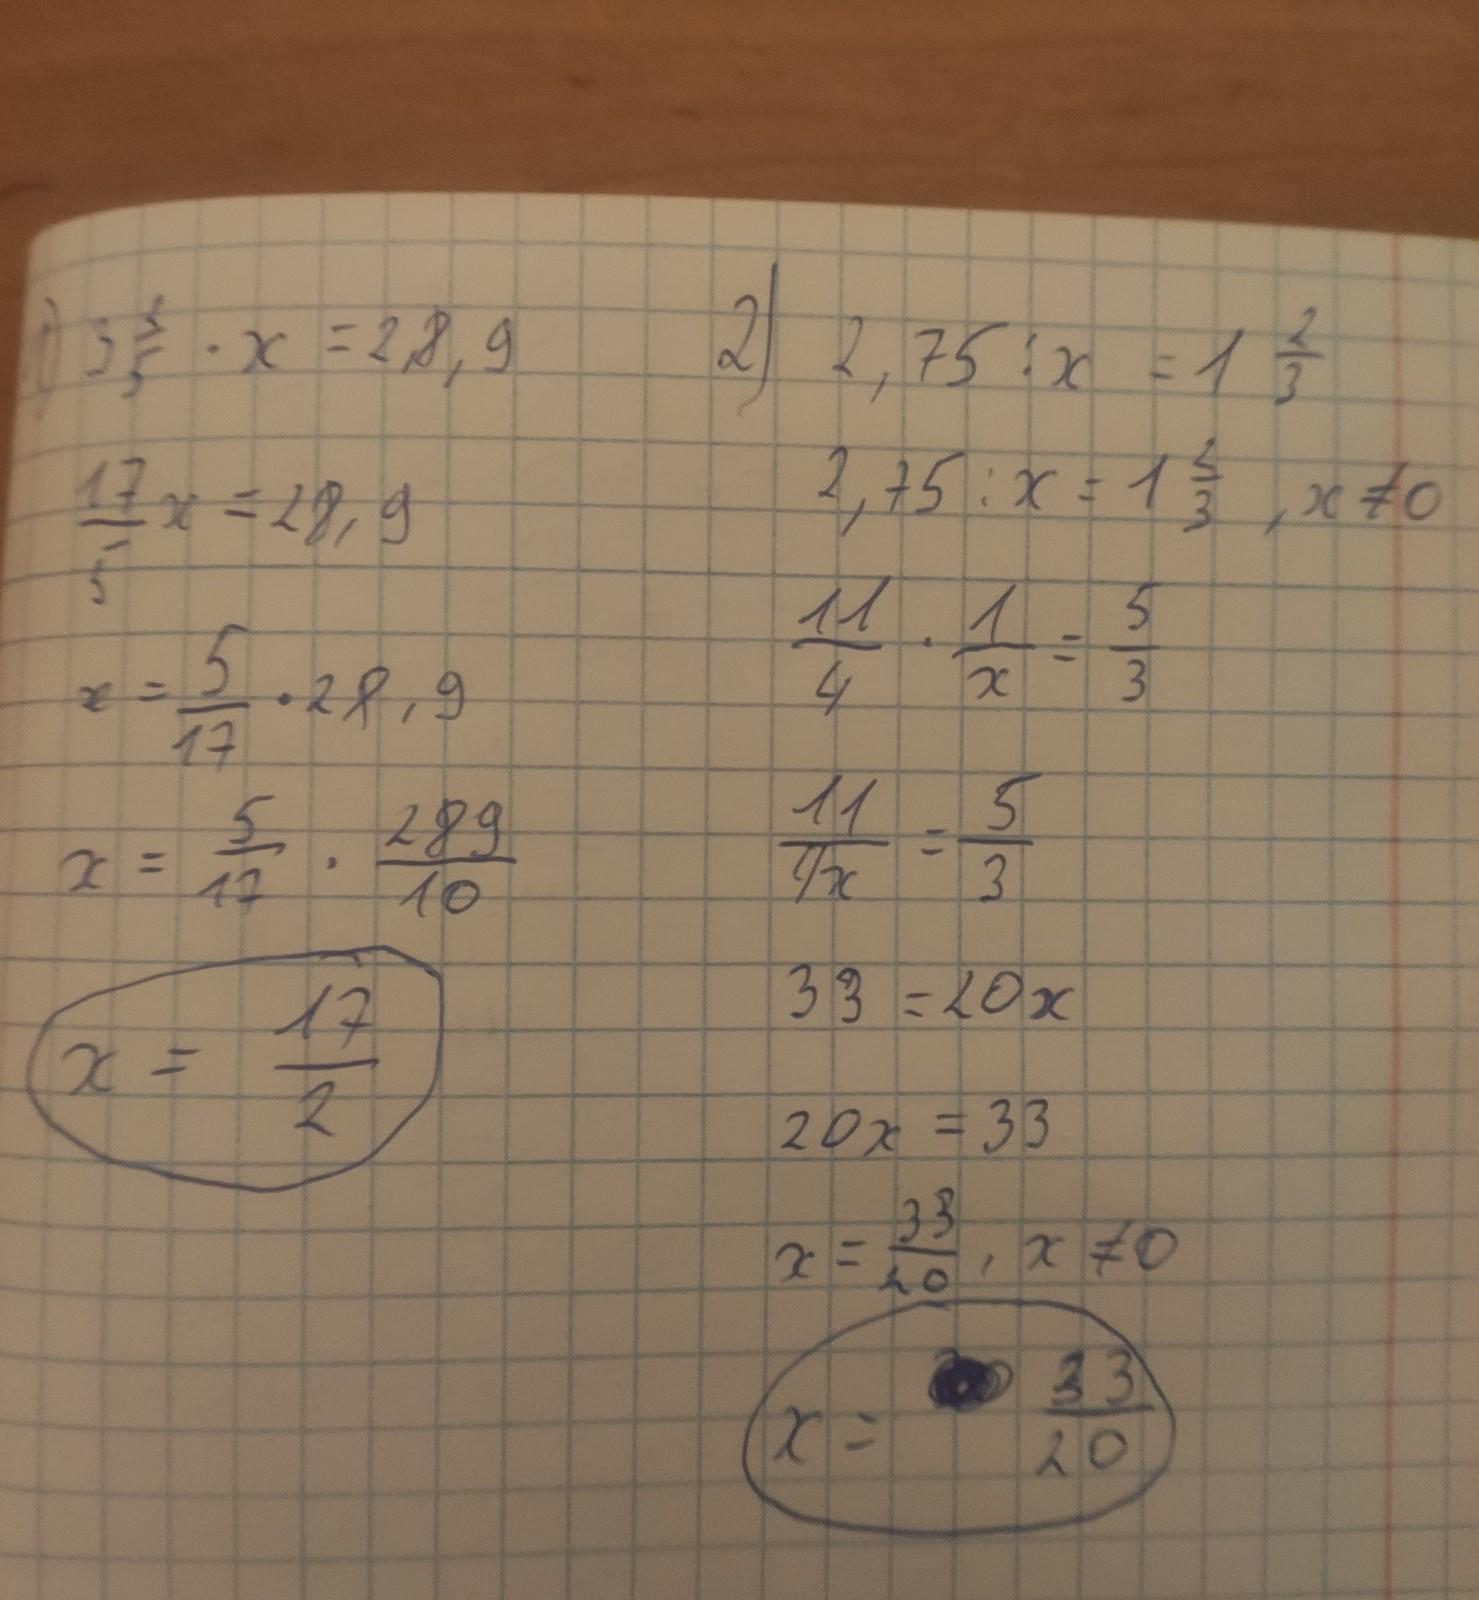 1) 3 2/5 · x = 28,9
17/5 x = 28,9
x = 5/17 · 28,9
x = 5/17 · 289/10
x = 17/2
2) 2,75 : x = 1 2/3
2,75 : x = 1 2/3 , x ≠ 0
11/4 · 1/x = 5/3
11/4x = 5/3
33 = 20x
20x = 33
x = 33/20 , x ≠ 0
x = 33/20